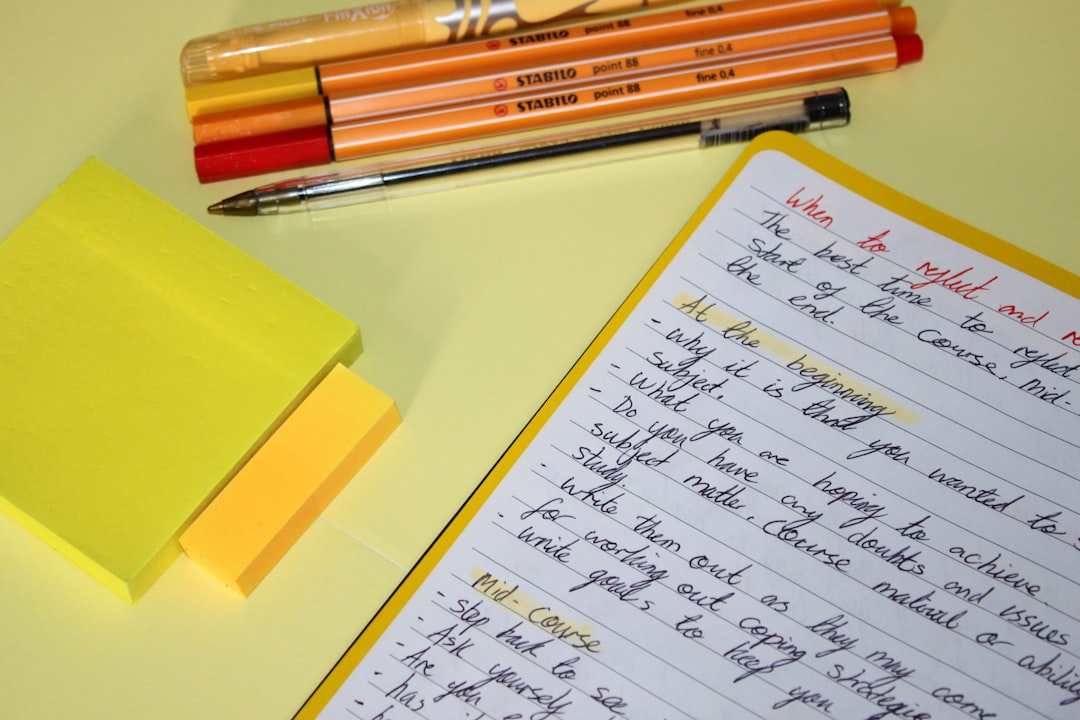 STABILO point 88 fine 0,4
STABILO point 88 fine 0,4
STABILO point 88 fine 0,4
When to reflect and
The best time to reflect
start of the course, mid-
the end.
At the beginning
- why it is that you wanted to
subject.
- What you are hoping to achieve.
- Do you have any doubts and issues
subject matter, course material or ability
study.
- write them out as they may come
for working out coping strategie
- write goals to keep you
Mid-Course
- step back to see
- Ask yourself
- Are you
- has